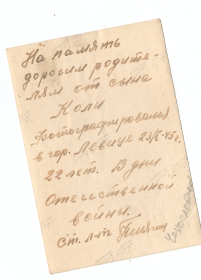 На память
дорогим родите-
лям от сына
Коли
Фотографировался
в гор. Левице 23/IV-45г.
22 лет. В дни
Отечественной
войны.
ст. л-т